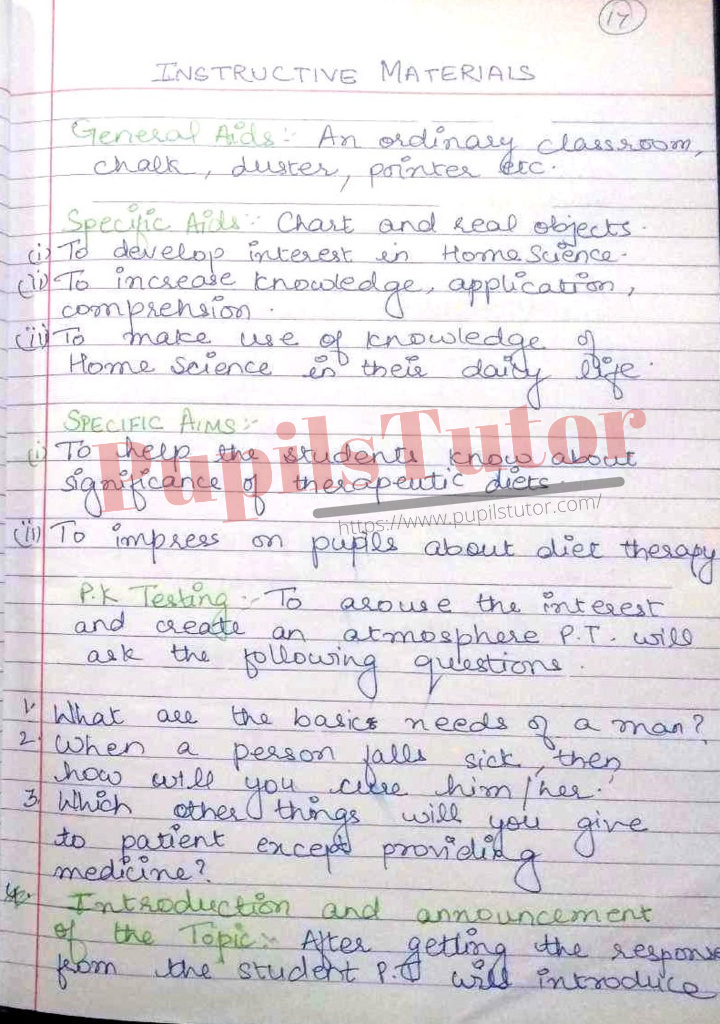 17
INSTRUCTIVE MATERIALS
General Aids:- An ordinary classroom,
chalk, duster, pointer etc.
Specific Aids:- Chart and real objects.
(i) To develop interest in Home Science.
(ii) To increase knowledge, application,
comprension.
(iii) To make use of knowledge of
Home Science in their daily life.
SPECIFIC AIMS:-
PupilsTutor
(i) To help the students know about
significance of therapeutic diets.
https://www.pupilstutor.com/
(ii) To impress on pupils about diet therapy
P.K Testing:- To arouse the interest
and create an atmosphere P.T. will
ask the following questions.
1. What are the basics needs of a man?
2. When a person falls sick, then
how will you cure him/her.
3. Which other things will you give
to patient except providing
medicine?
Introduction and announcement
of the Topic:- After getting the response
from the student P.T will introduce